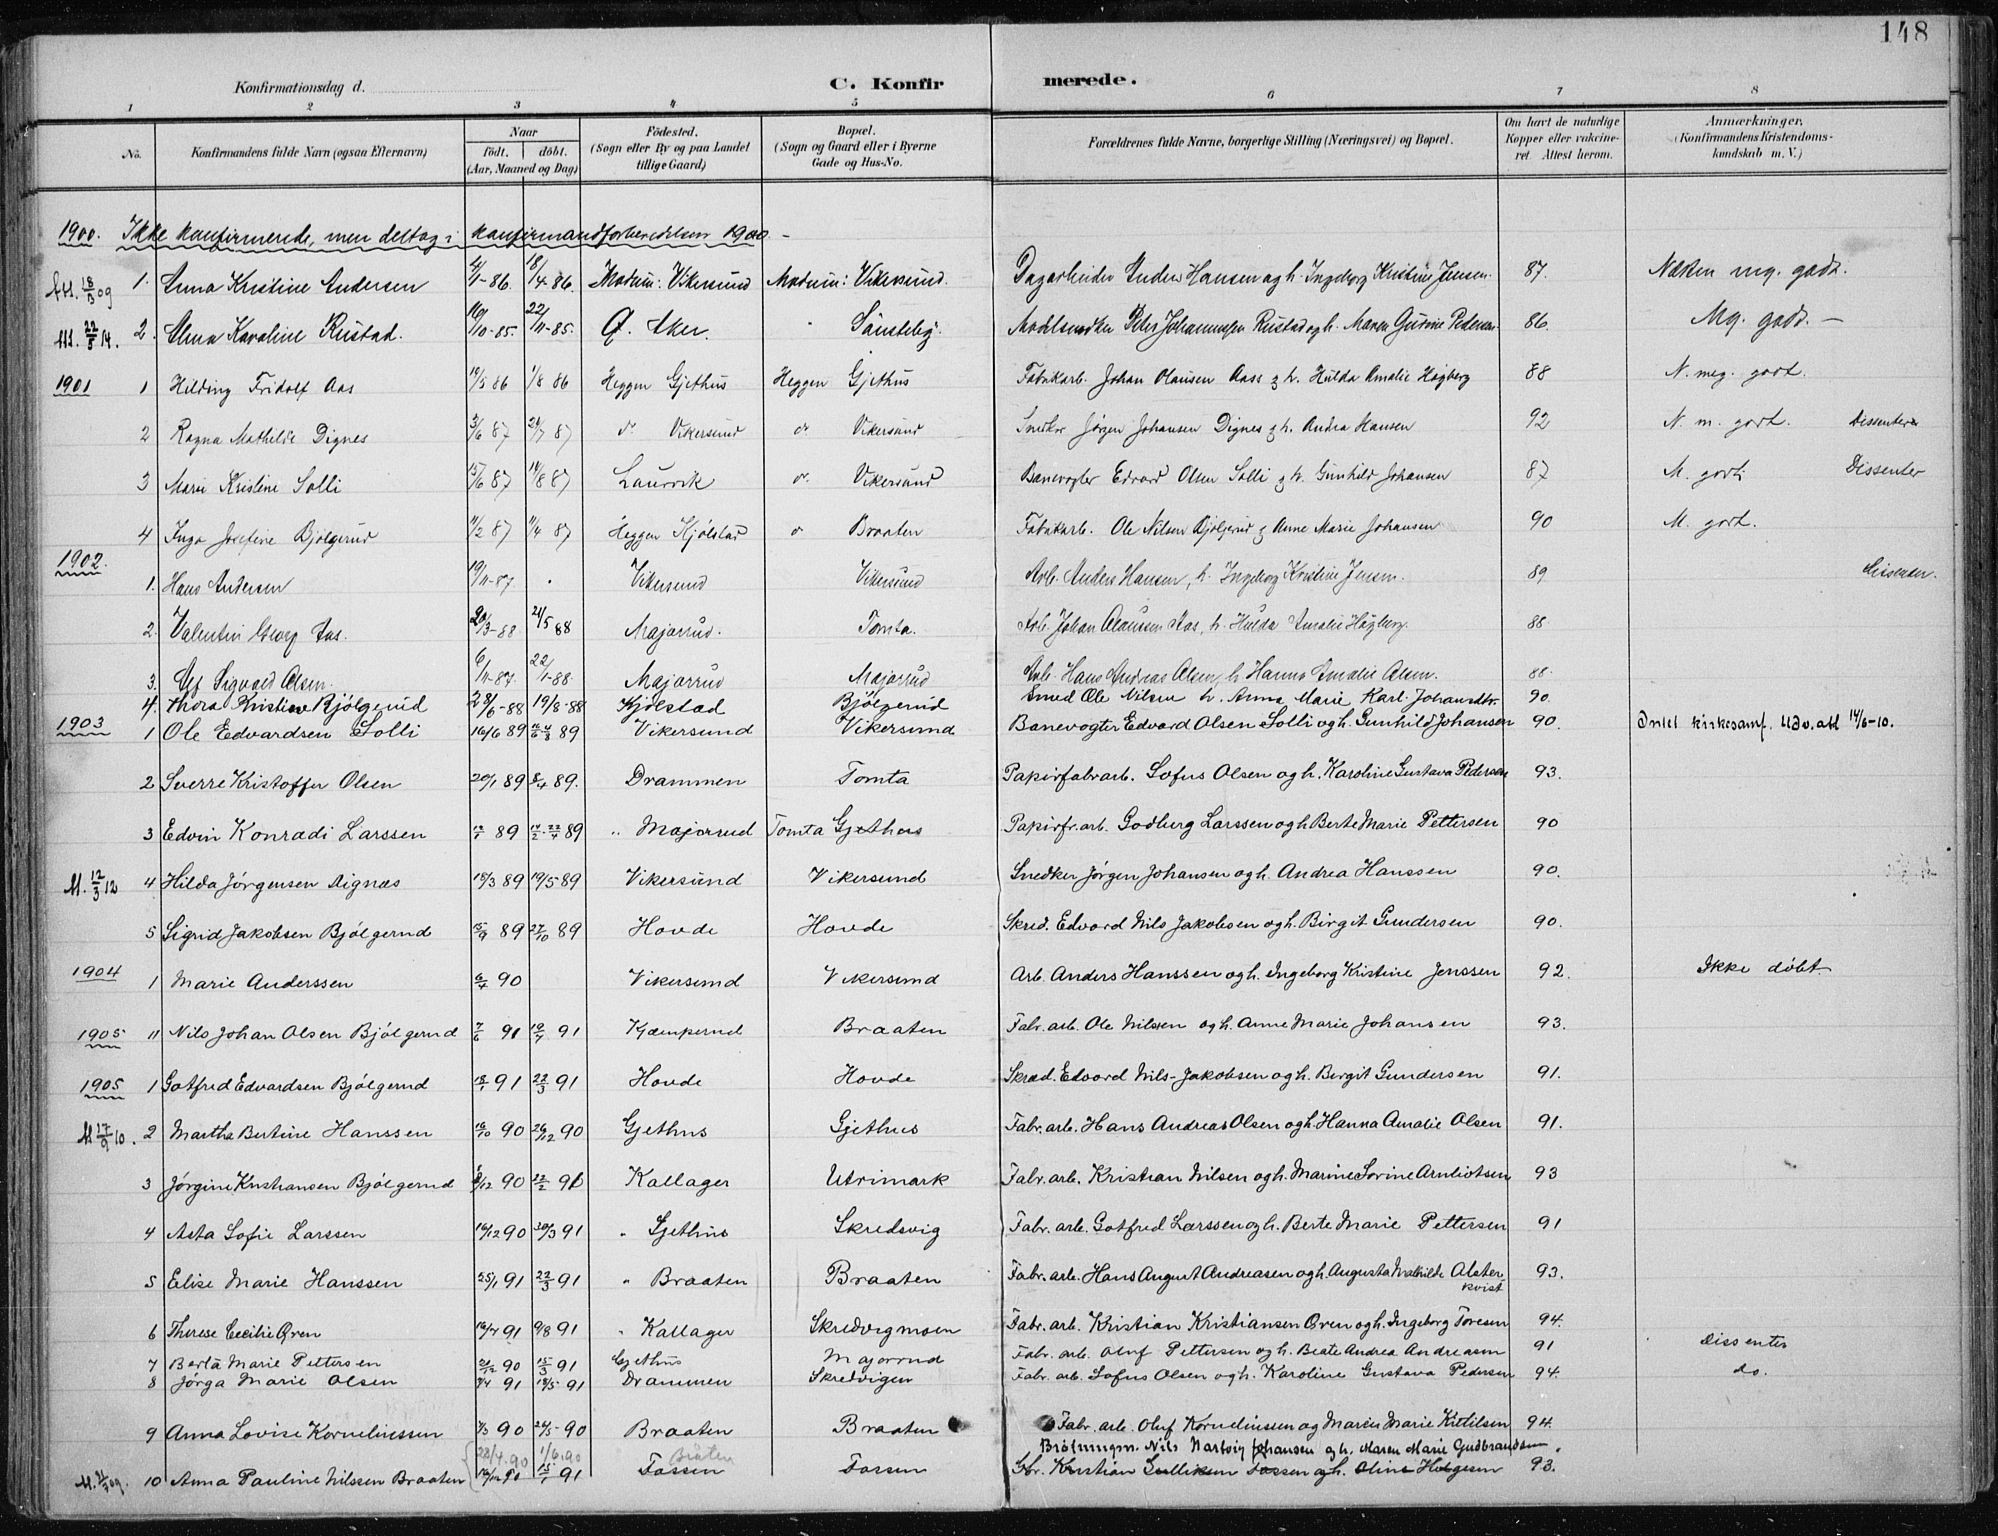 148
Konfirmationsdag d. C. Konfir merede.
1 2 3 4 5 6 7 8
No. Konfirmandens fulde Navn (ogsaa Efternavn) Naar født. døbt. (Aar, Maaned og Dag) Fødested. (Sogn eller By og paa Landet tillige Gaard) Bopæl. (Sogn og Gaard eller i Byerne Gade og Hus-No. Forældrenes fulde Navne, borgerlige Stilling (Næringsvei) og Bopæl. Om havt de naturlige Kopper eller vakcineret. Attest herom. Anmærkninger. (Konfirmandens Kristendomskundskab m. V.)
1900. Ikke konfirmerede, men deltog i konfirmandforberedelsen 1900. -
1. Anna Kristine Andersen 4/1-86. 18/4-86. Modum: Vikersund Modum: Vikersund. Dagarbeider Anders Hansen og h. Ingeborg Kristine Jensen. 87. Næsten mg. godt.
2. Alma Karoline Rustad. 10-85. 22/11-85. Ø. Aker. " Peter Johannesen Rustad og h. Maren Gurine Pedersen 86. Mg. godt. —
1901 1 Hilding Fridolf Aas 19/5 86 1/8 86 Heggen Gjethus Heggen Gjethus Fabrikarb. Johan Olausen Aass & h. Hulda Amalie Høgberg 88 N. meg. godt.
2 Ragna Mathilde Dignes 3/6 87 24/7 87 do Vikersund do. Vikersund Snedker Jørgen Johansen Dignes & h. Andra Hansen 92 N. m. godt. Dissentere
3 Marie Kristine Solli 15/6 87 14/8 87 Laurvik do. Vikersund Banevogter Edvard Olsen Solli & h. Gunhild Johansen 87 M. godt. Dissenter
4 Inga Josefine Bjølgerud 11/2 87 11/4 87 Heggen Kjølstad do Braaten Fabrikarb. Ole Nilsen Bjølgerud & Anne Marie Johansen 90 M. godt.
1902. 1. Hans Andersen 19/11-87 . Vikersund Vikersund Arb. Anders Hansen, h. Ingeborg Kristine Jensen. 89 Dissenter.
2. Valentin Georg Aas. 20/3-88 21/5 88 Majorrud. Tomta. Arb. Johan Olaussen Aas, h. Hulda Amalie Høgberg. 88
3. Sigvald Olsen. 6/11-87. 22/1-88. Majorrud Majorrud Arb. Hans Andreas Olsen, h Hanna Amalie Olsen. 88.
4. Thora Kristine Bjølgerud 28/6-88 19/8-88 Kjølstad Bjølgerud Smed Ole Nilsen h. Anna Marie Karl. Johansdtr. 90.
1903 1 Ole Edvardsen Solli 16/6 89 89 Vikersund Vikersund Banevogter Edvard Olsen Solli og h. Gunhild Johansen 90. kirkesamf. Udv.att 14/6-10.
2 Sverre Kristoffer Olsen 20/1 89 8/4 89. Drammen Tomta Papirfabrarb. Sofus Olsen og h. Karoline Gustava Pedersen 93.
3 Edvin Konradi Larssen 89 89 " Majorrud Tomta Gjethus Papirfr.arb. Larssen og h Berte Marie Pettersen 90
M. 12/3 12 4 Hilda Jørgensen Dignæs 15/3 89 19/5 89 Vikersund Vikersund Snedker Jørgen Johansen og h. Andrea Hanssen 90.
5 Sigrid Jakobsen Bjølgerud 15/9 89 27/10 89 Hovde Hovde Skred. Edvard Nils Jakobsen og h. Birgit Gundersen 90.
1904 1 Marie Anderssen 6/4 90 Vikersund Vikersund Arb. Anders Hanssen og h. Ingeborg Kristine Jenssen 92. Ikke døbt
1905 11 Nils Johan Olsen Bjølgerud 7/6 91 19/7 91 Kjæmperud Braaten Fabr. arb. Ole Nilssen og h. Anne Marie Johansen 93.
1905 1 Gotfred Edvardsen Bjølgerud 91 22/3 91 Hovde Hovde Skræd. Edvard Nils-Jakobsen og h. Birgit Gundersen 91.
M 17/9 10. 2 Martha Bertine Hanssen 16/10 90 26/12 90 Gjethus Gjethus Fabr. arb. Hans Andreas Olsen og h. Hanna Amalie Olsen 91.
3 Jørgine Kristiansen Bjølgerud 90 22/2 91 Kallager Utrimark Fabr. arb. Kristian Nilsen og h. Marine Sovine Arnliotsen 93
4 Asta Sofie Larssen 16/12 90 30/3 91 " Gjethus Skredsvig Fabr. arb. Gotfred Larssen og h. Berte Marie Pettersen 91
5 Elise Marie Hanssen 25/1 91 22/3 91 " Braaten Braaten Fabr. arb. Hans August Andreasen og h. Augusta Mathilde Alsterkvist 93.
6 Therese Cecilie Øren 16/4 91 9/8 91 " Kallager Skredvigmoen Fabr. arb. Kristian Kristiansen Øren og h. Ingeborg Toresen 94.
7 Berta Marie Pettersen 21/12 90 15/3 91 Gjethus Majorrud Fabr. arb. Oluf Pettersen og h. Beate Andrea Andreasen 91 Dissenter
8 Jørga Marie Olsen 91 18/5 91 Drammen Skredvigen Fabr. arb. Sofus Olsen og h. Karoline Gustava Pedersen 94. do.
9 Anna Lovise Korneliussen 7/3 90 26/5-90 Braaten Braaten Fabr. arb. Oluf Korneliussen og Maren Marie Kittilsen 94.
28/4.90 1/6.90 Bråten Nils Hartvig Johansen og h. Maren Marie Gudbrandsen.
10 Anna Pauline Nilssen Braaten 91 Fossen Fossen Gbr. Kristian Gulliksen Fossen og h. Oline Helgesen 93.